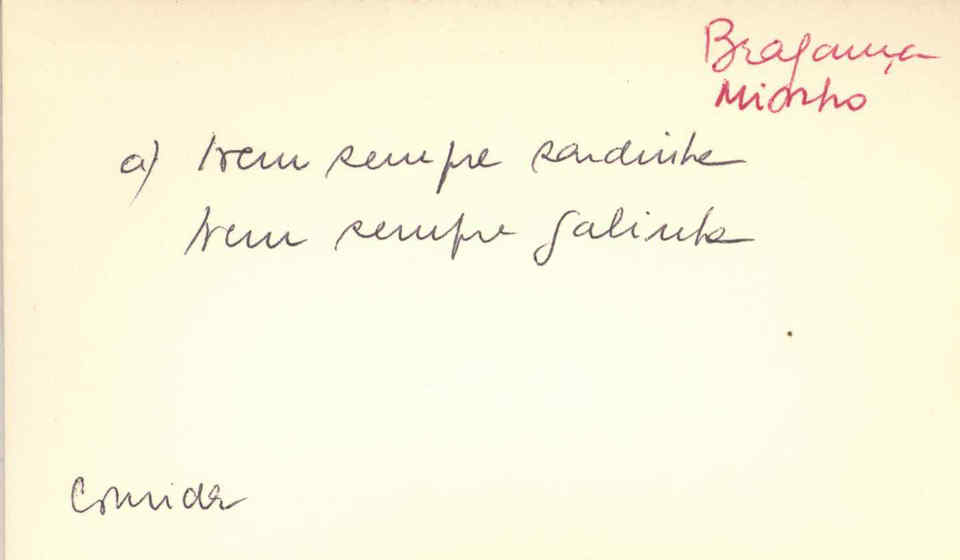 Bragança
Minho
a) Nem sempre sardinha
Nem sempre galinha
Comida